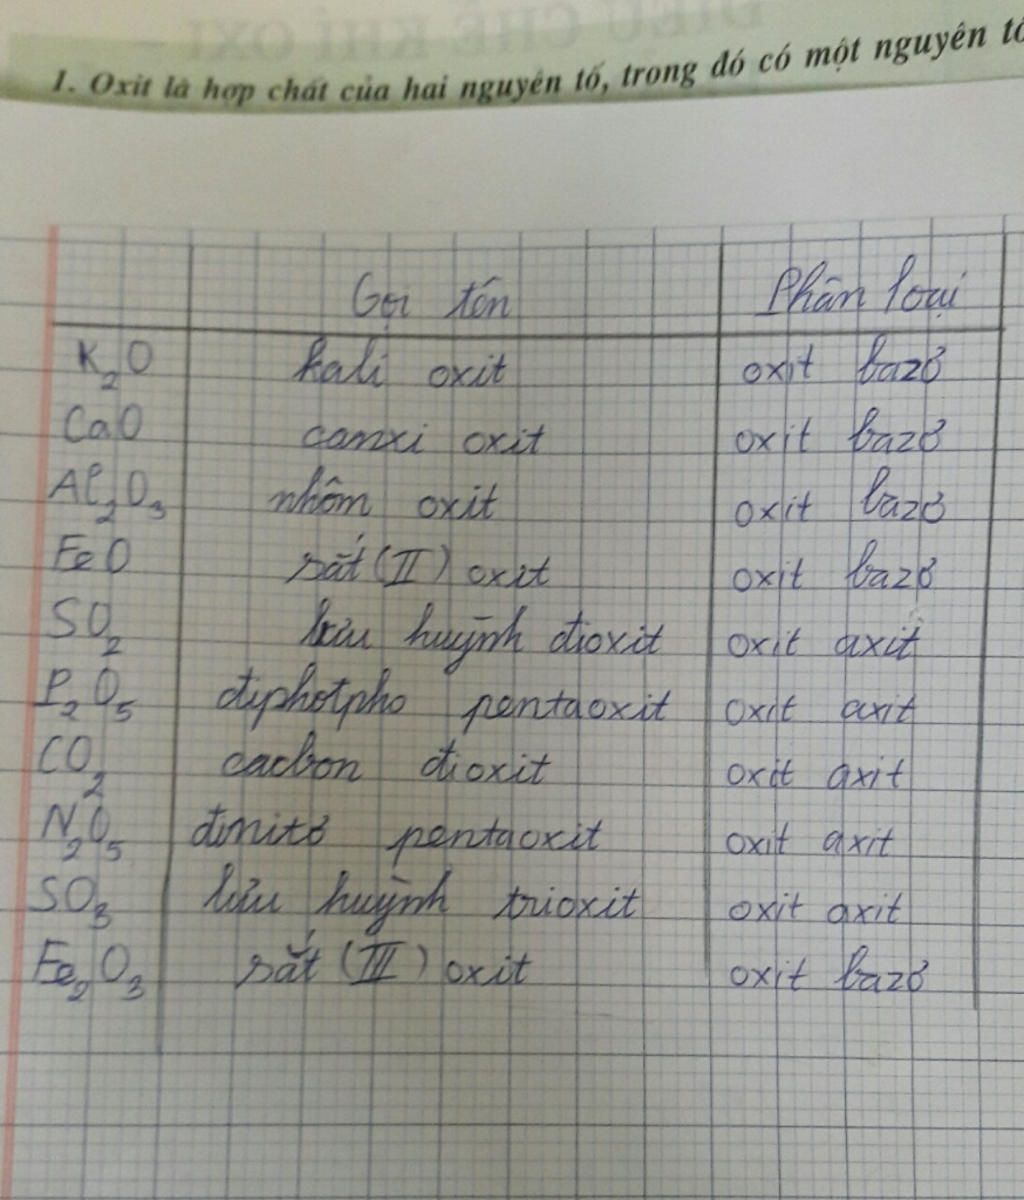 ĐIỀU CHẾ KHÍ OXI -
1. Oxit là hợp chất của hai nguyên tố, trong đó có một nguyên tố
Gọi tên Phân loại
K2O kali oxit oxit bazơ
CaO canxi oxit oxit bazơ
Al2O3 nhôm oxit oxit bazơ
FeO sắt (II) oxit oxit bazơ
SO2 lưu huỳnh đioxit oxit axit
P2O5 điphotpho pentaoxit oxit axit
CO2 cacbon đioxit oxit axit
N2O5 đinitơ pentaoxit oxit axit
SO3 lưu huỳnh trioxit oxit axit
Fe2O3 sắt (III) oxit oxit bazơ